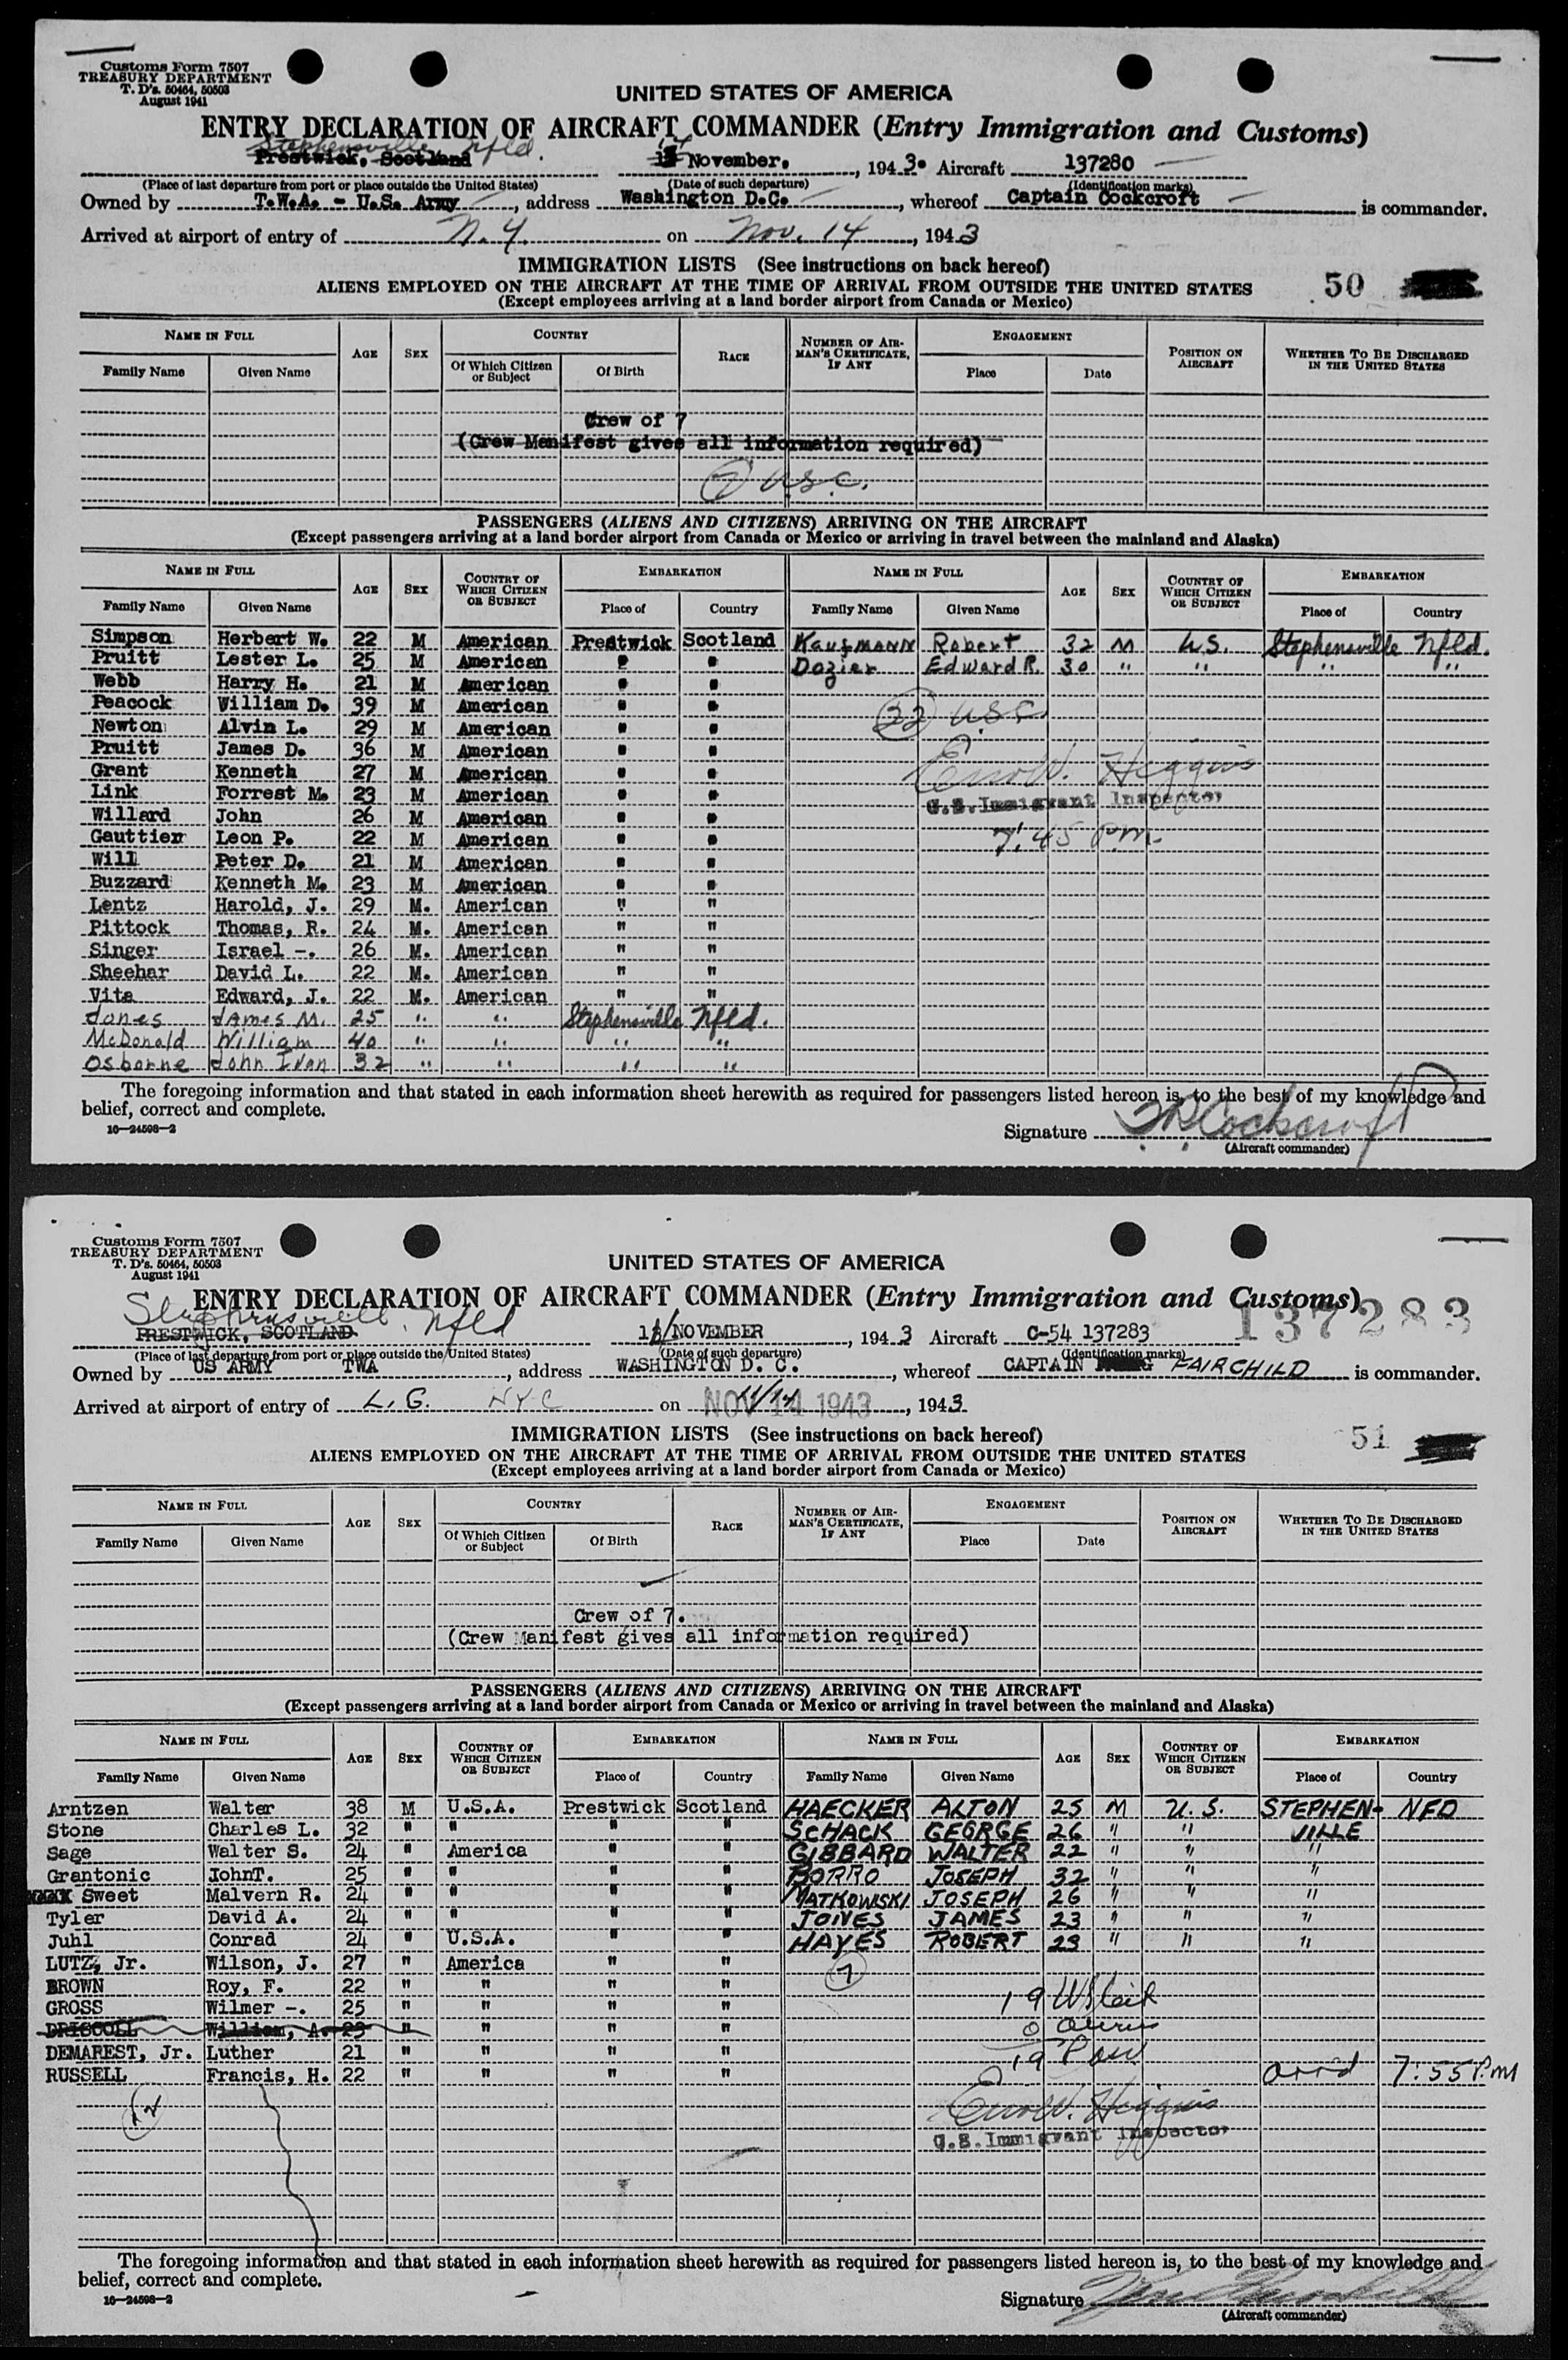 Customs Form 7507
TREASURY DEPARTMENT
T. D's. 50464, 50503
August 1941
UNITED STATES OF AMERICA
ENTRY DECLARATION OF AIRCRAFT COMMANDER (Entry Immigration and Customs)
Stephensville Nfld.
Prestwick, Scotland November, 1943. Aircraft 137280
(Place of last departure from port or place outside the United States) (Date of such departure) (Identification marks)
Owned by T.W.A. - U.S. Army, address Washington D.C., whereof Captain Cockcroft is commander.
Arrived at airport of entry of N.Y. on Nov. 14, 1943
IMMIGRATION LISTS (See instructions on back hereof)
50
ALIENS EMPLOYED ON THE AIRCRAFT AT THE TIME OF ARRIVAL FROM OUTSIDE THE UNITED STATES
(Except employees arriving at a land border airport from Canada or Mexico)
NAME IN FULL AGE SEX COUNTRY RACE NUMBER OF AIRMAN'S CERTIFICATE, IF ANY ENGAGEMENT POSITION ON AIRCRAFT WHETHER TO BE DISCHARGED IN THE UNITED STATES
Family Name Given Name Of Which Citizen or Subject Of Birth Place Date
Crew of 7
(Crew Manifest gives all information required)
7 USC.
PASSENGERS (ALIENS AND CITIZENS) ARRIVING ON THE AIRCRAFT
(Except passengers arriving at a land border airport from Canada or Mexico or arriving in travel between the mainland and Alaska)
NAME IN FULL AGE SEX COUNTRY OF WHICH CITIZEN OR SUBJECT EMBARKATION NAME IN FULL AGE SEX COUNTRY OF WHICH CITIZEN OR SUBJECT EMBARKATION
Family Name Given Name Place of Country Family Name Given Name Place of Country
Simpson Herbert W. 22 M American Prestwick Scotland Kaufmann Robert 32 M U.S. Stephensville Nfld.
Pruitt Lester L. 25 M American " " Dozier Edward R. 30 " " " "
Webb Harry H. 21 M American " "
Peacock William D. 39 M American " " 22 USC
Newton Alvin L. 29 M American " "
Pruitt James D. 36 M American " "
Grant Kenneth 27 M American " " Higgins
Link Forrest M. 23 M American " " U.S. Immigrant Inspector
Willard John 26 M American " "
Gauttier Leon P. 22 M American " " 7:45 P.M.
Will Peter D. 21 M American " "
Buzzard Kenneth M. 23 M American " "
Lentz Harold, J. 29 M. American " "
Pittock Thomas, R. 24 M. American " "
Singer Israel -. 26 M. American " "
Sheehar David L. 22 M. American " "
Vita Edward, J. 22 M. American " "
Jones James M. 25 " " Stephensville Nfld.
McDonald William 40 " " " "
Osborne John Ivan 32 " " " "
The foregoing information and that stated in each information sheet herewith as required for passengers listed hereon is, to the best of my knowledge and
belief, correct and complete.
16-24598-2
Signature Cockcroft
(Aircraft commander)
Customs Form 7507
TREASURY DEPARTMENT
T. D's. 50464, 50503
August 1941
UNITED STATES OF AMERICA
ENTRY DECLARATION OF AIRCRAFT COMMANDER (Entry Immigration and Customs)
137283
Stephensville, Nfld
PRESTWICK, SCOTLAND NOVEMBER, 1943 Aircraft C-54 137283
(Place of last departure from port or place outside the United States) (Date of such departure) (Identification marks)
Owned by US ARMY TWA, address WASHINGTON D. C., whereof CAPTAIN FAIRCHILD is commander.
Arrived at airport of entry of L.G. NYC on NOV 14 1943 11/14, 1943
IMMIGRATION LISTS (See instructions on back hereof)
51
ALIENS EMPLOYED ON THE AIRCRAFT AT THE TIME OF ARRIVAL FROM OUTSIDE THE UNITED STATES
(Except employees arriving at a land border airport from Canada or Mexico)
NAME IN FULL AGE SEX COUNTRY RACE NUMBER OF AIRMAN'S CERTIFICATE, IF ANY ENGAGEMENT POSITION ON AIRCRAFT WHETHER TO BE DISCHARGED IN THE UNITED STATES
Family Name Given Name Of Which Citizen or Subject Of Birth Place Date
Crew of 7.
(Crew Manifest gives all information required)
PASSENGERS (ALIENS AND CITIZENS) ARRIVING ON THE AIRCRAFT
(Except passengers arriving at a land border airport from Canada or Mexico or arriving in travel between the mainland and Alaska)
NAME IN FULL AGE SEX COUNTRY OF WHICH CITIZEN OR SUBJECT EMBARKATION NAME IN FULL AGE SEX COUNTRY OF WHICH CITIZEN OR SUBJECT EMBARKATION
Family Name Given Name Place of Country Family Name Given Name Place of Country
Arntzen Walter 38 M U.S.A. Prestwick Scotland HAECKER ALTON 25 M U.S. STEPHEN- NFD
Stone Charles L. 32 " " " " SCHACK GEORGE 26 " " VILLE
Sage Walter S. 24 " America " " GIBBARD WALTER 22 " " "
Grantonic JohnT. 25 " " " " BORRO JOSEPH 32 " " "
Sweet Malvern R. 24 " " " " MATKOWSKI JOSEPH 26 " " "
Tyler David A. 24 " " " " JOINES JAMES 23 " " "
Juhl Conrad 24 " U.S.A. " " HAYES ROBERT 23 " " "
LUTZ, Jr. Wilson, J. 27 " America " " 7
BROWN Roy, F. 22 " " " "
GROSS Wilmer -. 25 " " " " 19
DRISCOLL William, A. 23 " " " " 0
DEMAREST, Jr. Luther 21 " " " " 19
RUSSELL Francis, H. 22 " " " " arrd 7:55 P.M
12
Higgins
U.S. Immigrant Inspector
The foregoing information and that stated in each information sheet herewith as required for passengers listed hereon is, to the best of my knowledge and
belief, correct and complete.
16-24598-2
Signature
(Aircraft commander)